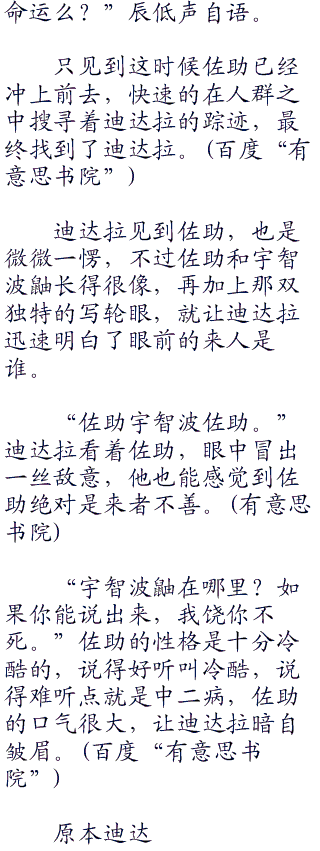 命运么？”辰低声自语。
只见到这时候佐助已经
冲上前去，快速的在人群之
中搜寻着迪达拉的踪迹，最
终找到了迪达拉。(百度“有
意思书院”)
迪达拉见到佐助，也是
微微一愣，不过佐助和宇智
波鼬长得很像，再加上那双
独特的写轮眼，就让迪达拉
迅速明白了眼前的来人是
谁。
“佐助宇智波佐助。”
迪达拉看着佐助，眼中冒出
一丝敌意，他也能感觉到佐
助绝对是来者不善。(有意思
书院)
“宇智波鼬在哪里？如
果你能说出来，我饶你不
死。”佐助的性格是十分冷
酷的，说得好听叫冷酷，说
得难听点就是中二病，佐助
的口气很大，让迪达拉暗自
皱眉。(百度“有意思书
院”)
原本迪达